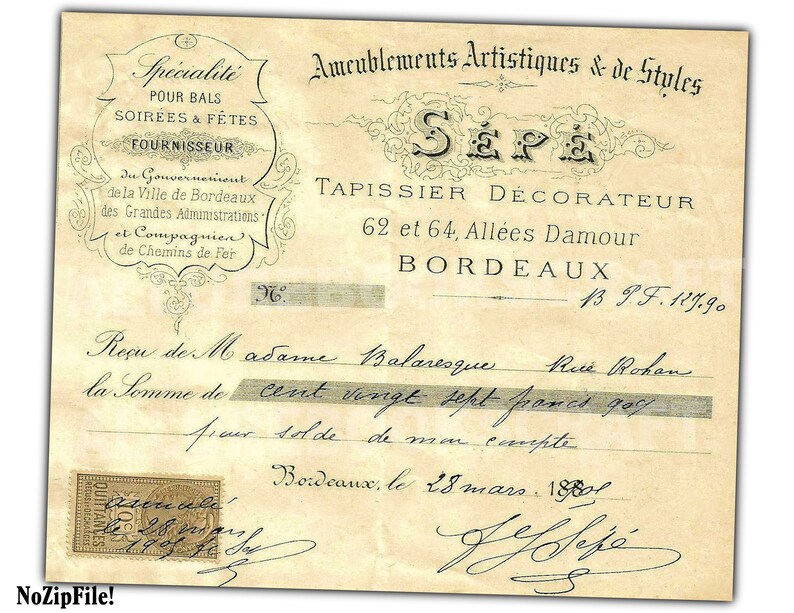 Spécialité
POUR BALS
SOIRÉES & FÊTES
FOURNISSEUR
du Gouvernement
de la Ville de Bordeaux
des Grandes Administrations
et Compagnies
de Chemins de Fer
Ameublements Artistiques & de Styles
SÉPÉ
TAPISSIER DÉCORATEUR
62 et 64, Allées Damour
BORDEAUX
No.
B P F. 127,90
Reçu de Madame Balaresque Rue Rohan
la Somme de cent vingt sept francs 90c/
pour solde de mon compte
Bordeaux, le 28 mars
QUITTANCES
REÇUS & DÉCHARGES
10c
annulé
le 28 mars
Sépé
NoZipFile!